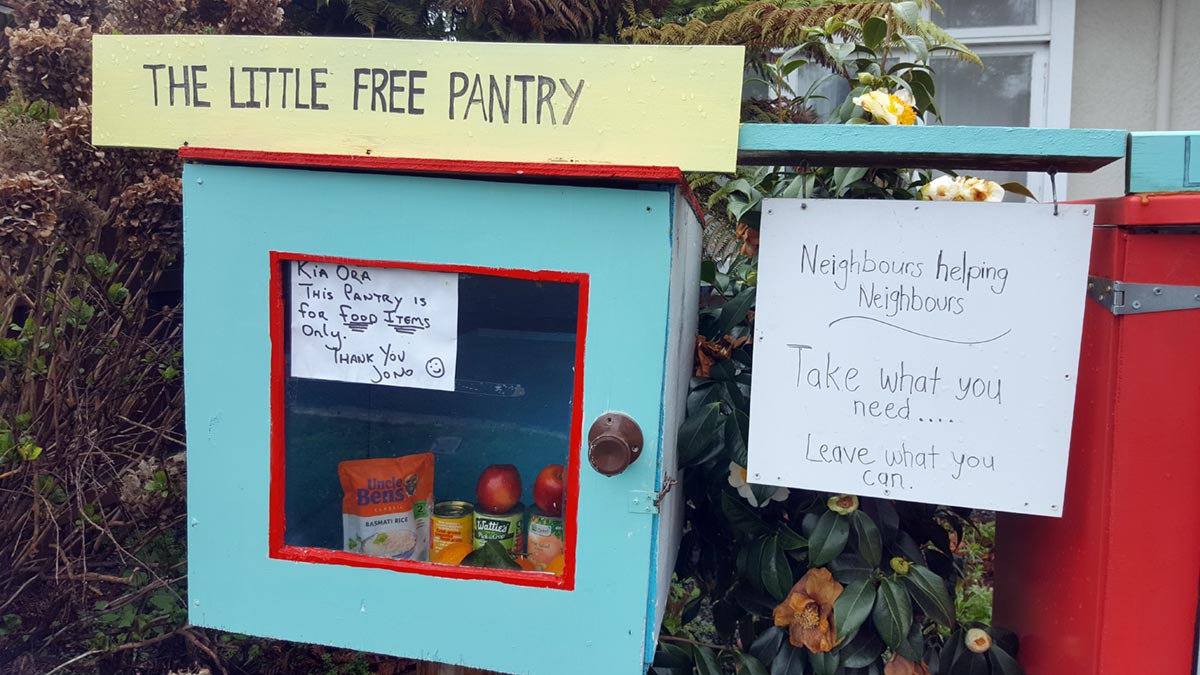 THE LITTLE FREE PANTRY
KIA ORA
THIS PANTRY IS
FOR FOOD ITEMS
ONLY.
THANK YOU
JONO
Neighbours helping
Neighbours
Take what you
need....
Leave what you
can.
Uncle
Ben's
CLASSIC
BASMATI RICE
2
Wattie's